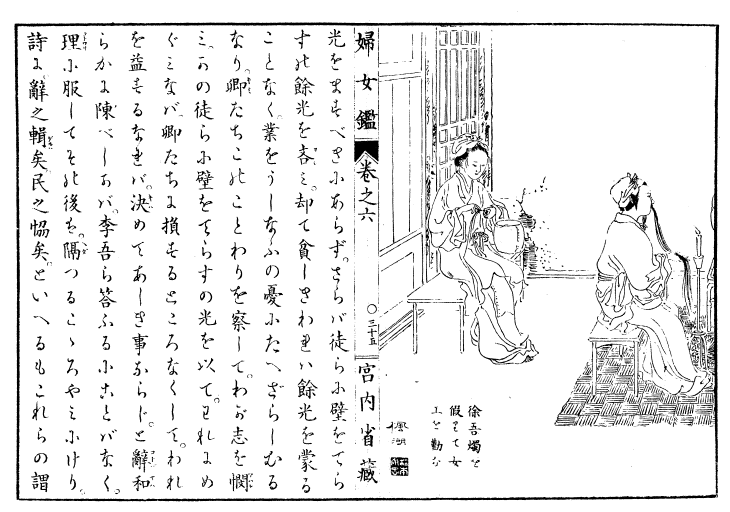 徐吾燭を
假りて女
工を勸む
楓湖
婦女鑑 卷之六 ○三十五 宮内省藏
光をますべきにあらず。さらバ徒らに壁をてら
すの餘光を吝ミ。却て貧しきわれハ餘光を蒙る
ことなく。業をうしなふの憂にたへざらしむる
なり。卿たちこのことわりを察して。わが志を憫
ミ。かの徒らに壁をてらすの光を以て。われにめ
ぐミなバ。卿たちに損するところなくして。われ
を益するなれバ。決めてあしき事ならじ。と辭和
らかに陳べしかバ。李吾ら答ふるにことバなく。
理に服してその後は。隔つるこゝろやミにけり。
詩に辭之輯矣。民之恊矣。といへるもこれらの謂